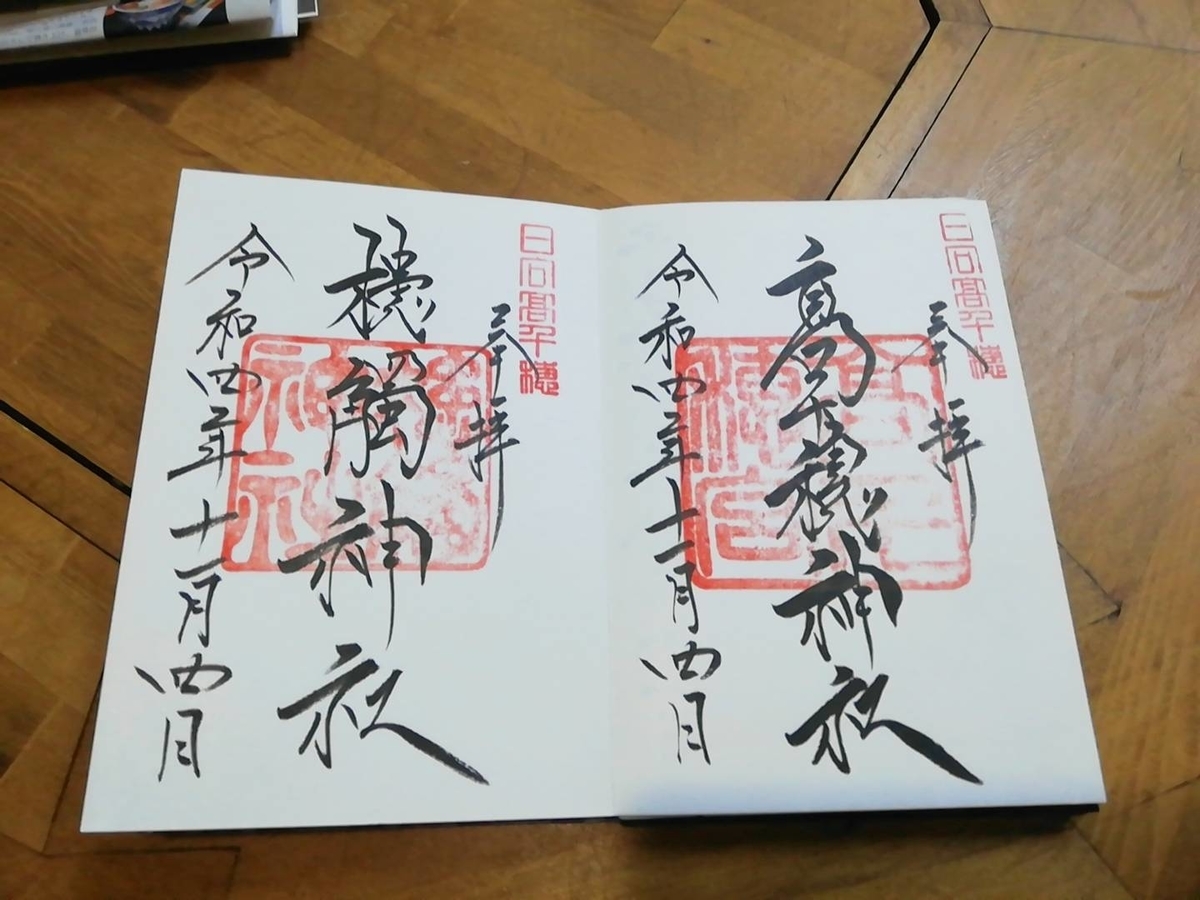 日向高千穂
奉拝
高千穂神社
令和四年十一月四日
日向高千穂
奉拝
槵觸神社
令和四年十一月四日